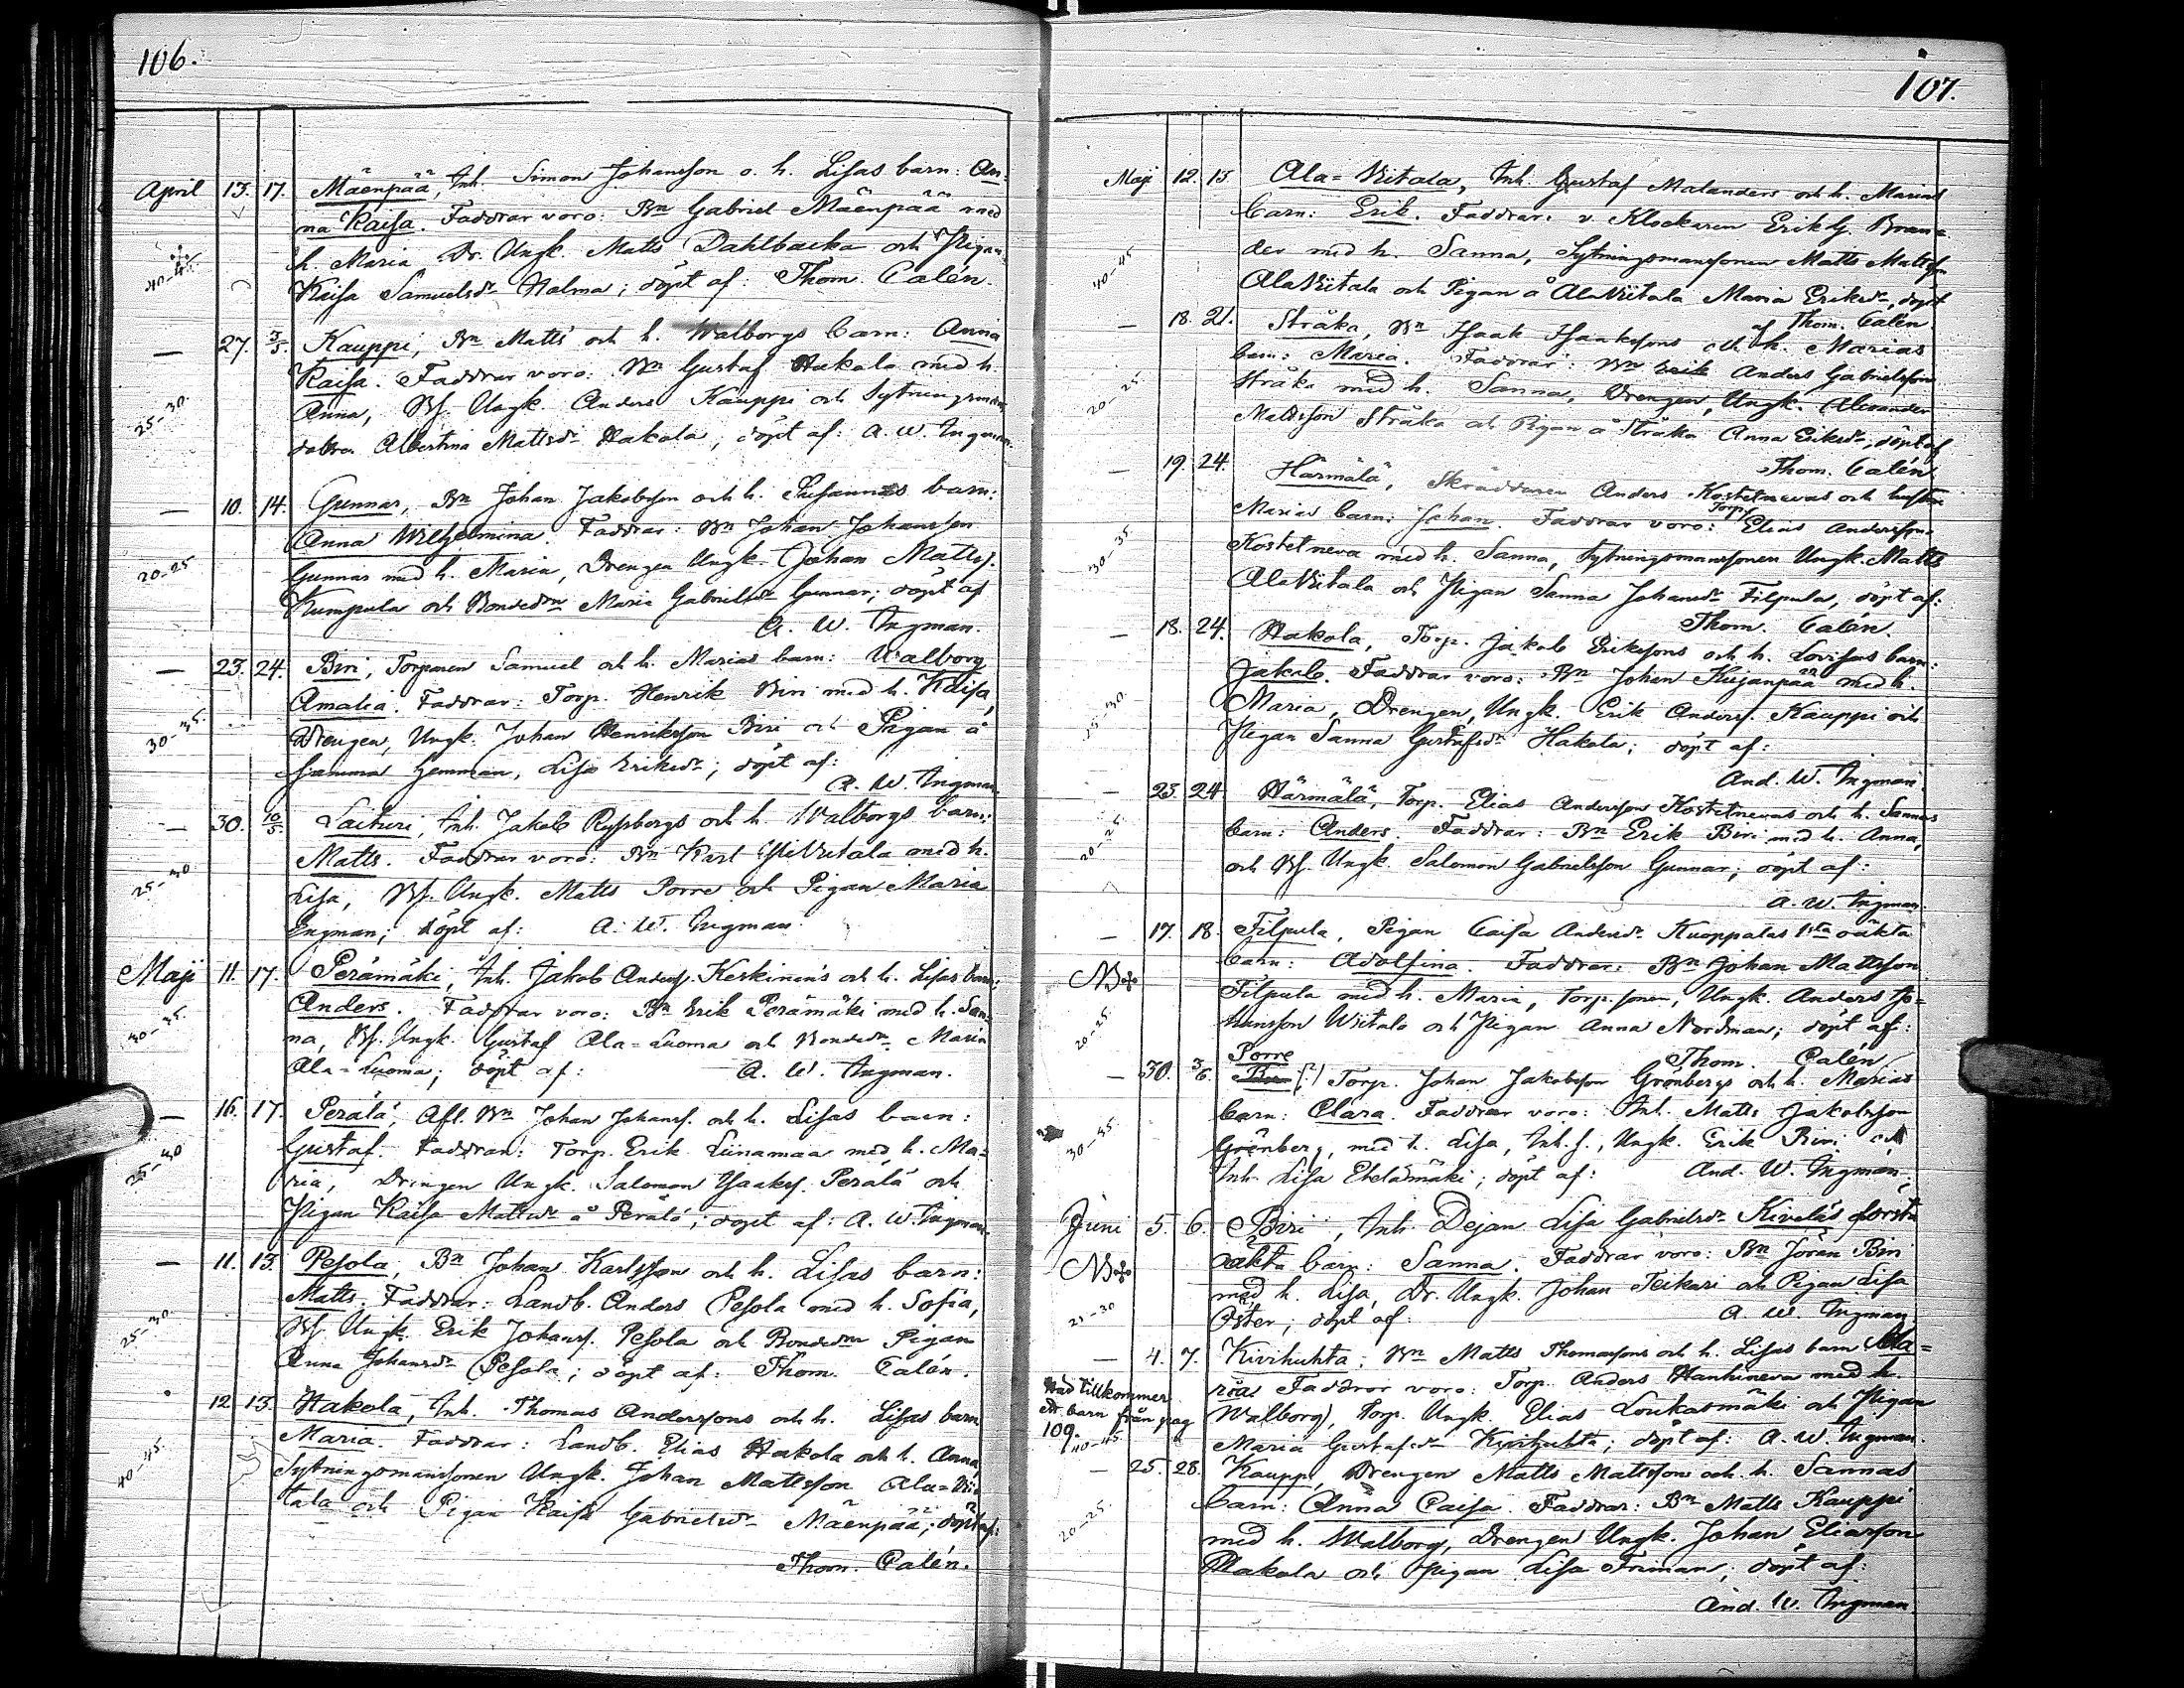 106.
April 13. 17. Mäenpää, Inh. Simon Johansson o. h. Lisas barn: An-
na Kaisa. Faddrar voro: Bn Gabriel Mäenpää med
h. Maria Dr. Ungk. Matts Dahlbacka och Pigan
40-45. Kaisa Samuelsdr Halma; döpt af: Thom. Calén.
— 27. 3/5. Kauppi, Bn Matts och h. Walborgs barn: Anna
Kaisa. Faddrar voro: Bn Gustaf Hakola med h.
25-30. Anna, Bs. Ungk. Anders Kauppi och Sytningsmans
dottren Albertina Mattsdr Hakola; döpt af: A. W. Ingman.
— 10. 14. Gunnar, Bn Johan Jakobsson och h. Susannas barn:
Anna Wilhelmina. Faddrar: Bn Johan Johansson
20-25 Gunnar med h. Maria, Drengen Ungk. Johan Mattss.
Kumpula och Bondedn Maria Gabrielsdr Gunnar; döpt af
A. W. Ingman.
— 23. 24. Biri, Torparen Samuel och h. Marias barn: Walborg
Amalia. Faddrar: Torp. Henrik Biri med h. Kaisa,
30-35. Drengen, Ungk. Johan Henriksson Biri och Pigan å
Gemman, Lisa Eriksdr; döpt af:
A. W. Ingman.
— 30. 10/5. Laituri, Inh. Jakob Rysbergs och h. Walborgs barn:
Matts. Faddrar voro: Bn Karl Yliviitala med h.
25-30 Lisa, Bs. Ungk. Matts Porre och Pigan Maria
Engman; döpt af: A. W. Ingman.
Maji 11. 17. Perämäki, Inh. Jakob Anderss. Keskinen's och h. Lisas barn:
Anders. Faddrar voro: Bn Erik Perämäki med h. San-
30-35. na, Bs. Ungk. Gustaf Ala-Luoma och Bondedn Maria
Ala-Luoma; döpt af: A. W. Ingman.
— 16. 17. Perälä, Afl. Bn Johan Johanss. och h. Lisas barn:
Gustaf. Faddrar: Torp. Erik Liinamaa med h. Ma-
35-40 ria, Drengen Ungk. Salomon Isakss. Perälä och
Pigan Kaisa Mattsdr å Perälä; döpt af: A. W. Ingman.
— 11. 13. Pesola, Bn Johan Karlsson och h. Lisas barn:
Matts. Faddrar: Landb. Anders Pesola med h. Sofia,
25-30. Bs. Ungk. Erik Johanss. Pesola och Bondedn Pigan
Anna Johansdr Pesola; döpt af: Thom. Calén.
12 13. Hakola, Inh. Thomas Anderssons och h. Lisas barn
Maria. Faddrar: Landb. Elias Hakola och h. Anna
40-45. Sytningsmanssonen Ungk. Johan Mattsson Ala-Vii
tala och Pigan Kaisa Gabrielsdr Mäenpää; döpt af:
Thom. Calén.
107.
Maji 12. 13. Ala-Vitala, Inh. Gustaf Malanders och h. Marias
barn: Erik. Faddrar: v. Klockaren Erik G. Bran-
40-45 der med h. Sanna, Sytningsmanssonen Matts Mattss
Ala Viitala och Pigan å Ala Viitala Maria Eriksdr, döpt
af Thom. Calén
— 18. 21. Stråka, Bn Isaak Isaakssons och h. Marias
barn: Maria. Faddrar: Bn Erik Anders Gabrielsson
20-25 Stråka med h. Sanna, Drengen, Ungk. Alexander
Mattsson Stråka och Pigan å Stråka Anna Eriksdr, döpt af
Thom. Calén
— 19. 24. Härmälä, Skräddaren Anders Kostetnevas och hustru
Marias barn: Johan. Faddrar voro: Torp. Elias Anderssons
30-35. Kostetneva med h. Sanna, Sytningsmanssonen Ungk. Matts
Ala Viitala och Pigan Sanna Johansdr Filpula, döpt af:
Thom. Calén.
— 18. 24. Hakola, Torp. Jakob Erikssons och h. Lovisas barn:
Jakob. Faddrar voro: Bn Johan Kujanpää med h.
Maria, Drengen, Ungk. Erik Anderss. Kauppi och
Pigan Sanna Gustafsdr Hakola; döpt af:
And. W. Ingman.
— 23. 24. Härmälä, Torp. Elias Andersson Kostetnevas och h. Sannas
barn: Anders. Faddrar: Bn Erik Biri med h. Anna,
och Bs. Ungk. Salomon Gabrielsson Gunnar; döpt af:
A. W. Ingman.
— 17. 18. Filpula, Pigan Caisa Andersdr Kuoppalas 1sta oäkta
barn: Adolfina. Faddrar: Bn Johan Mattsson
Filpula med h. Maria, Torp. sonen, Ungk. Anders Jo-
20-25. hansson Wiitala och Pigan Anna Nordman; döpt af:
Thom. Calén
— 30. 3/6. Porre Torp. Johan Jakobsson Grönbergs och h. Marias
barn: Clara. Faddrar voro: Inh. Matts Jakobsson
30-35. Grönberg, med h. Lisa, Inh. s., Ungk. Erik Biri och
Inh. Lisa Etelämäki; döpt af: And. W. Ingman.
Juni 5. 6. Biri, Inh. Dejan Lisa Gabrielsdr Kiveläs första
oäkta barn: Sanna. Faddrar voro: Bn Jöran Biri
med h. Lisa, Dr. Ungk. Johan Teikari och Pigan Lisa
Öster; döpt af: A. W. Ingman.
— 4. 7. Kivihuhta; Bn Matts Thomassons och h. Lisas barn Ma-
ria. Faddrar voro: Torp. Anders Hanhineva med h.
Walborg, Torp. Ungk. Elias Loukasmäki och Pigan
Maria Gustafsdr Kivihuhta; döpt af: A. W. Ingman.
tillkommer
barn från pag
109.
40-45.
— 25. 28. Kauppi, Drengen Matts Mattsson och h. Sannas
barn: Anna Caisa. Faddrar: Bn Matts Kauppi
20-25. med h. Walborg, Drengen Ungk. Johan Eliasson
Hakola och Pigan Lisa Friman; döpt af:
And. W. Ingman.